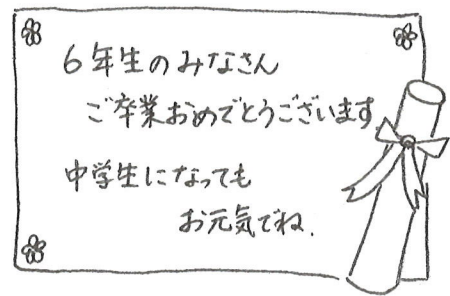 6年生のみなさん
ご卒業おめでとうございます
中学生になっても
お元気でね.